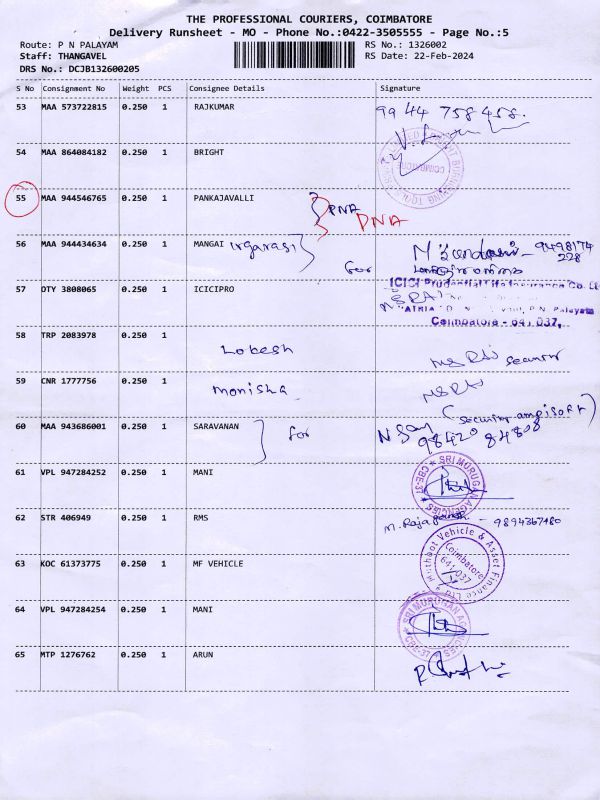 THE PROFESSIONAL COURIERS, COIMBATORE
Delivery Runsheet - MO - Phone No.:0422-3505555 - Page No.:5
Route: P N PALAYAM
RS No.: 1326002
Staff: THANGAVEL
RS Date: 22-Feb-2024
DRS No.: DCJB132600205
S No Consignment No Weight PCS Consignee Details Signature
53 MAA 573722815 0.250 1 RAJKUMAR 9944 758458.
54 MAA 864084182 0.250 1 BRIGHT
COIMBATORE
55 MAA 944546765 0.250 1 PANKAJAVALLI PNA PNA
56 MAA 944434634 0.250 1 MANGAI 9498174
for 228
57 DTY 3808065 0.250 1 ICICIPRO ICICI Prudential Life Insurance Co. L
P N Palayam
Coimbatore - 641 037.
58 TRP 2083978 0.250 1
Lokesh
59 CNR 1777756 0.250 1 Monisha
60 MAA 943686001 0.250 1 SARAVANAN for
98420 84808
61 VPL 947284252 0.250 1 MANI SRI MURUGAN AGENCIES CBE-37
62 STR 406949 0.250 1 RMS - 9894367480
63 KOC 61373775 0.250 1 MF VEHICLE Muthoot Vehicle & Asset Finance Ltd Coimbatore 641 037
64 VPL 947284254 0.250 1 MANI SRI MURUGAN AGENCIES CBE-37
65 MTP 1276762 0.250 1 ARUN